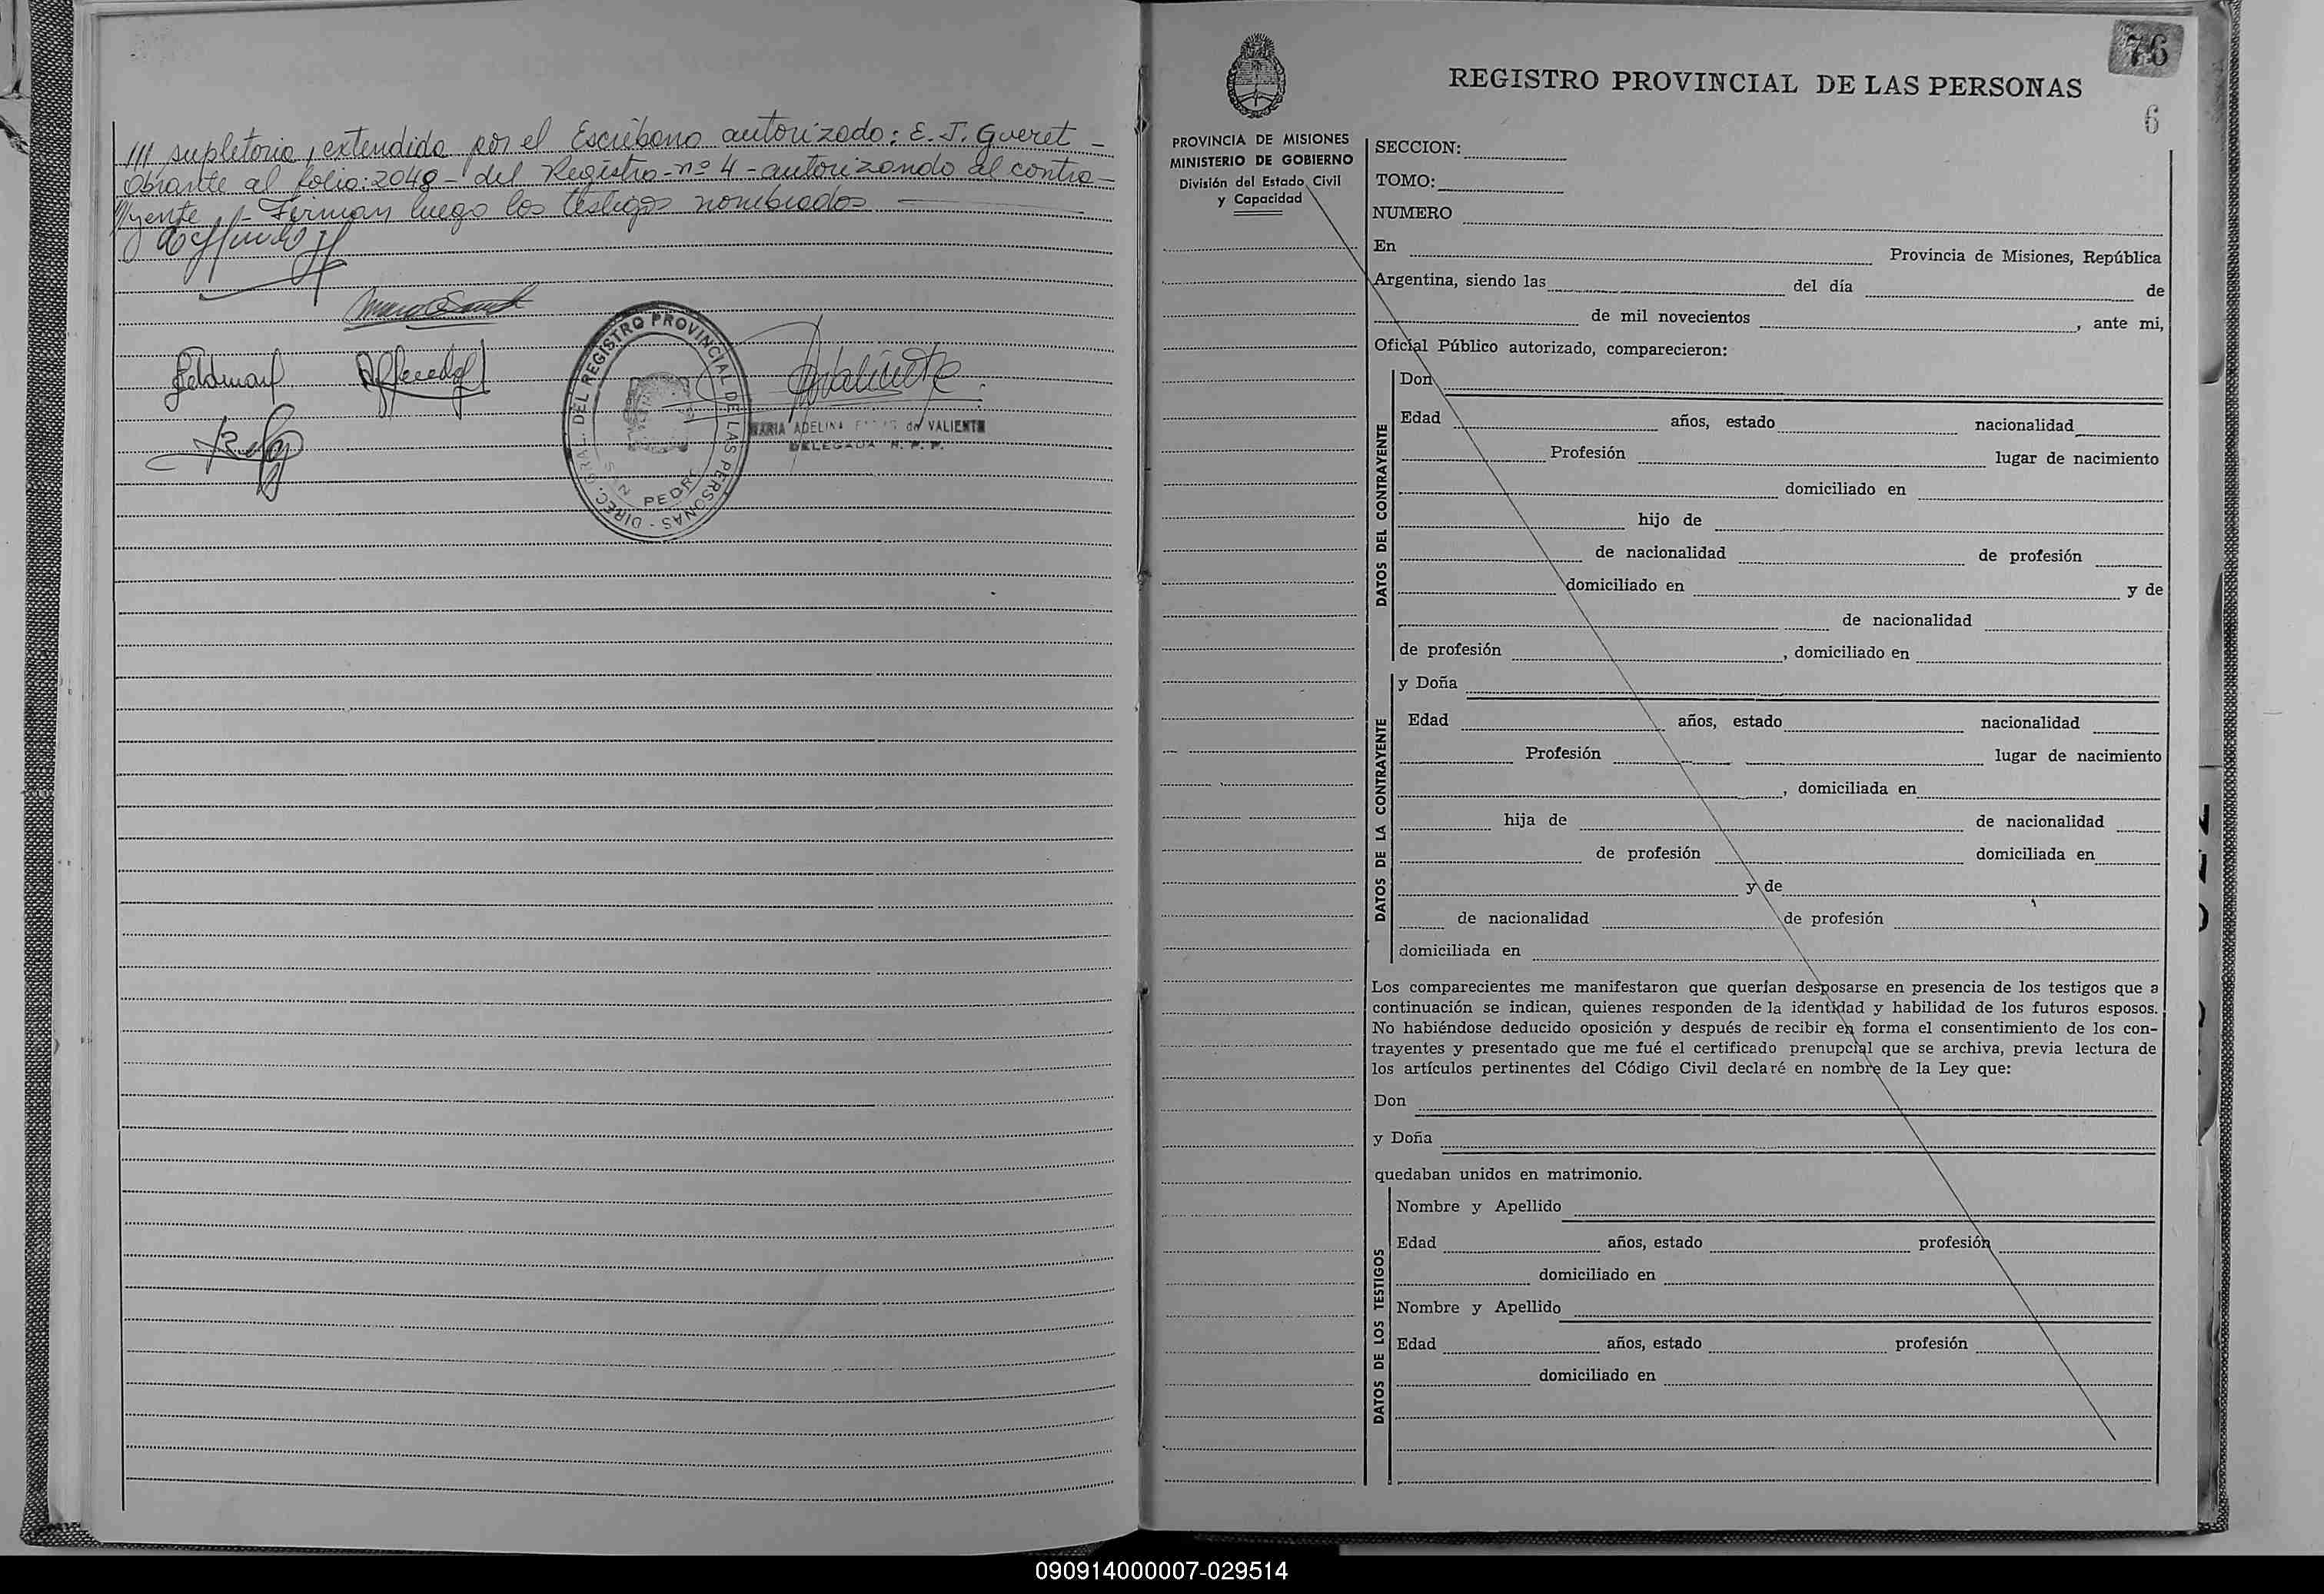 /// supletoria, extendida por el Escribano autorizado: E. J. Gueret -
Obrante al folio: 2048 - del Registro - nº 4 - autorizando al contra-
///yente. /- Firman luego los testigos nombrados
Feldman
DIREC. GRAL. DEL REGISTRO PROVINCIAL DE LAS PERSONAS -
PEDRO
MARIA ADELINA de VALIENTE
DELEGADA R. P. P.
76
REGISTRO PROVINCIAL DE LAS PERSONAS
6
PROVINCIA DE MISIONES
MINISTERIO DE GOBIERNO
División del Estado Civil
y Capacidad
SECCION:
TOMO:
NUMERO
En Provincia de Misiones, República
Argentina, siendo las del día de
de mil novecientos , ante mi,
Oficial Público autorizado, comparecieron:
DATOS DEL CONTRAYENTE
Don
Edad años, estado nacionalidad
Profesión lugar de nacimiento
domiciliado en
hijo de
de nacionalidad de profesión
domiciliado en y de
de nacionalidad
de profesión , domiciliado en
DATOS DE LA CONTRAYENTE
y Doña
Edad años, estado nacionalidad
Profesión lugar de nacimiento
, domiciliada en
hija de de nacionalidad
de profesión domiciliada en
y de
de nacionalidad de profesión
domiciliada en
Los comparecientes me manifestaron que querían desposarse en presencia de los testigos que a
continuación se indican, quienes responden de la identidad y habilidad de los futuros esposos.
No habiéndose deducido oposición y después de recibir en forma el consentimiento de los con-
trayentes y presentado que me fué el certificado prenupcial que se archiva, previa lectura de
los artículos pertinentes del Código Civil declaré en nombre de la Ley que:
Don
y Doña
quedaban unidos en matrimonio.
DATOS DE LOS TESTIGOS
Nombre y Apellido
Edad años, estado profesión
domiciliado en
Nombre y Apellido
Edad años, estado profesión
domiciliado en
090914000007-029514